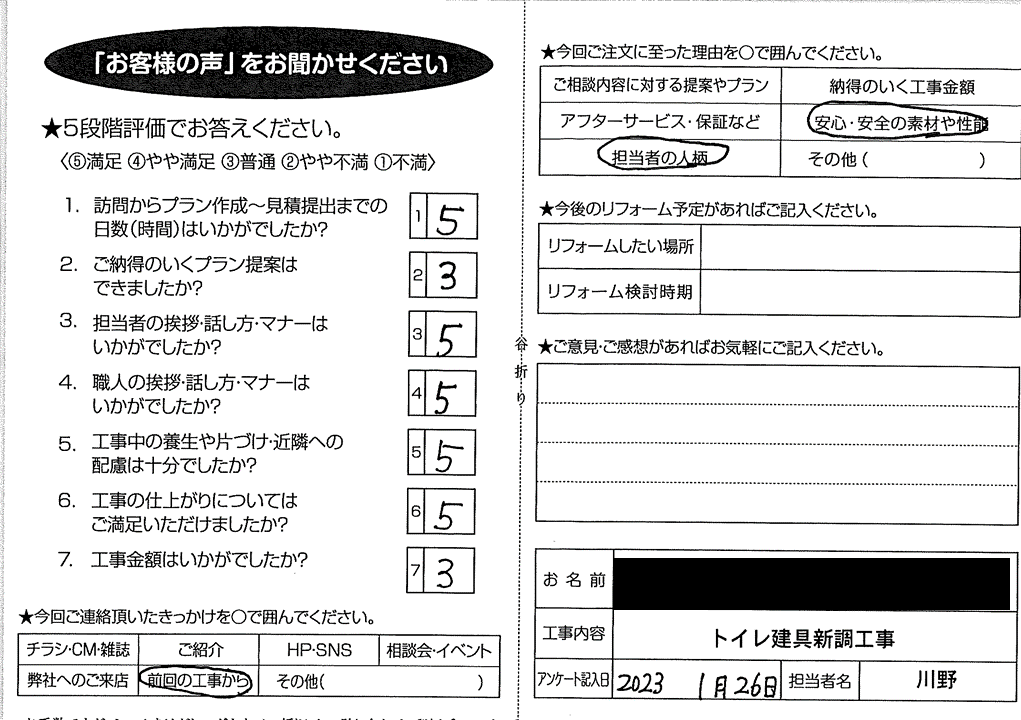 「お客様の声」をお聞かせください
★5段階評価でお答えください。
〈⑤満足 ④やや満足 ③普通 ②やや不満 ①不満〉
1. 訪問からプラン作成〜見積提出までの
日数(時間)はいかがでしたか?
1 5
2. ご納得のいくプラン提案は
できましたか?
2 3
3. 担当者の挨拶・話し方・マナーは
いかがでしたか?
3 5
4. 職人の挨拶・話し方・マナーは
いかがでしたか?
4 5
5. 工事中の養生や片づけ・近隣への
配慮は十分でしたか?
5 5
6. 工事の仕上がりについては
ご満足いただけましたか?
6 5
7. 工事金額はいかがでしたか?
7 3
★今回ご連絡頂いたきっかけを○で囲んでください。
チラシ・CM・雑誌 ご紹介 HP・SNS 相談会・イベント
弊社へのご来店 前回の工事から その他( )
谷折り
★今回ご注文に至った理由を○で囲んでください。
ご相談内容に対する提案やプラン 納得のいく工事金額
アフターサービス・保証など 安心・安全の素材や性能
担当者の人柄 その他( )
★今後のリフォーム予定があればご記入ください。
リフォームしたい場所
リフォーム検討時期
★ご意見・ご感想があればお気軽にご記入ください。
お名前
工事内容 トイレ建具新調工事
アンケート記入日 2023 1月26日 担当者名 川野